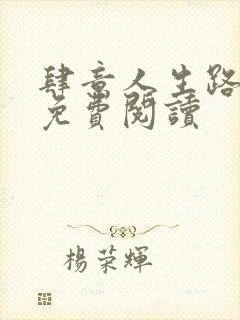 肆意人生路
免費閱讀
楊榮輝